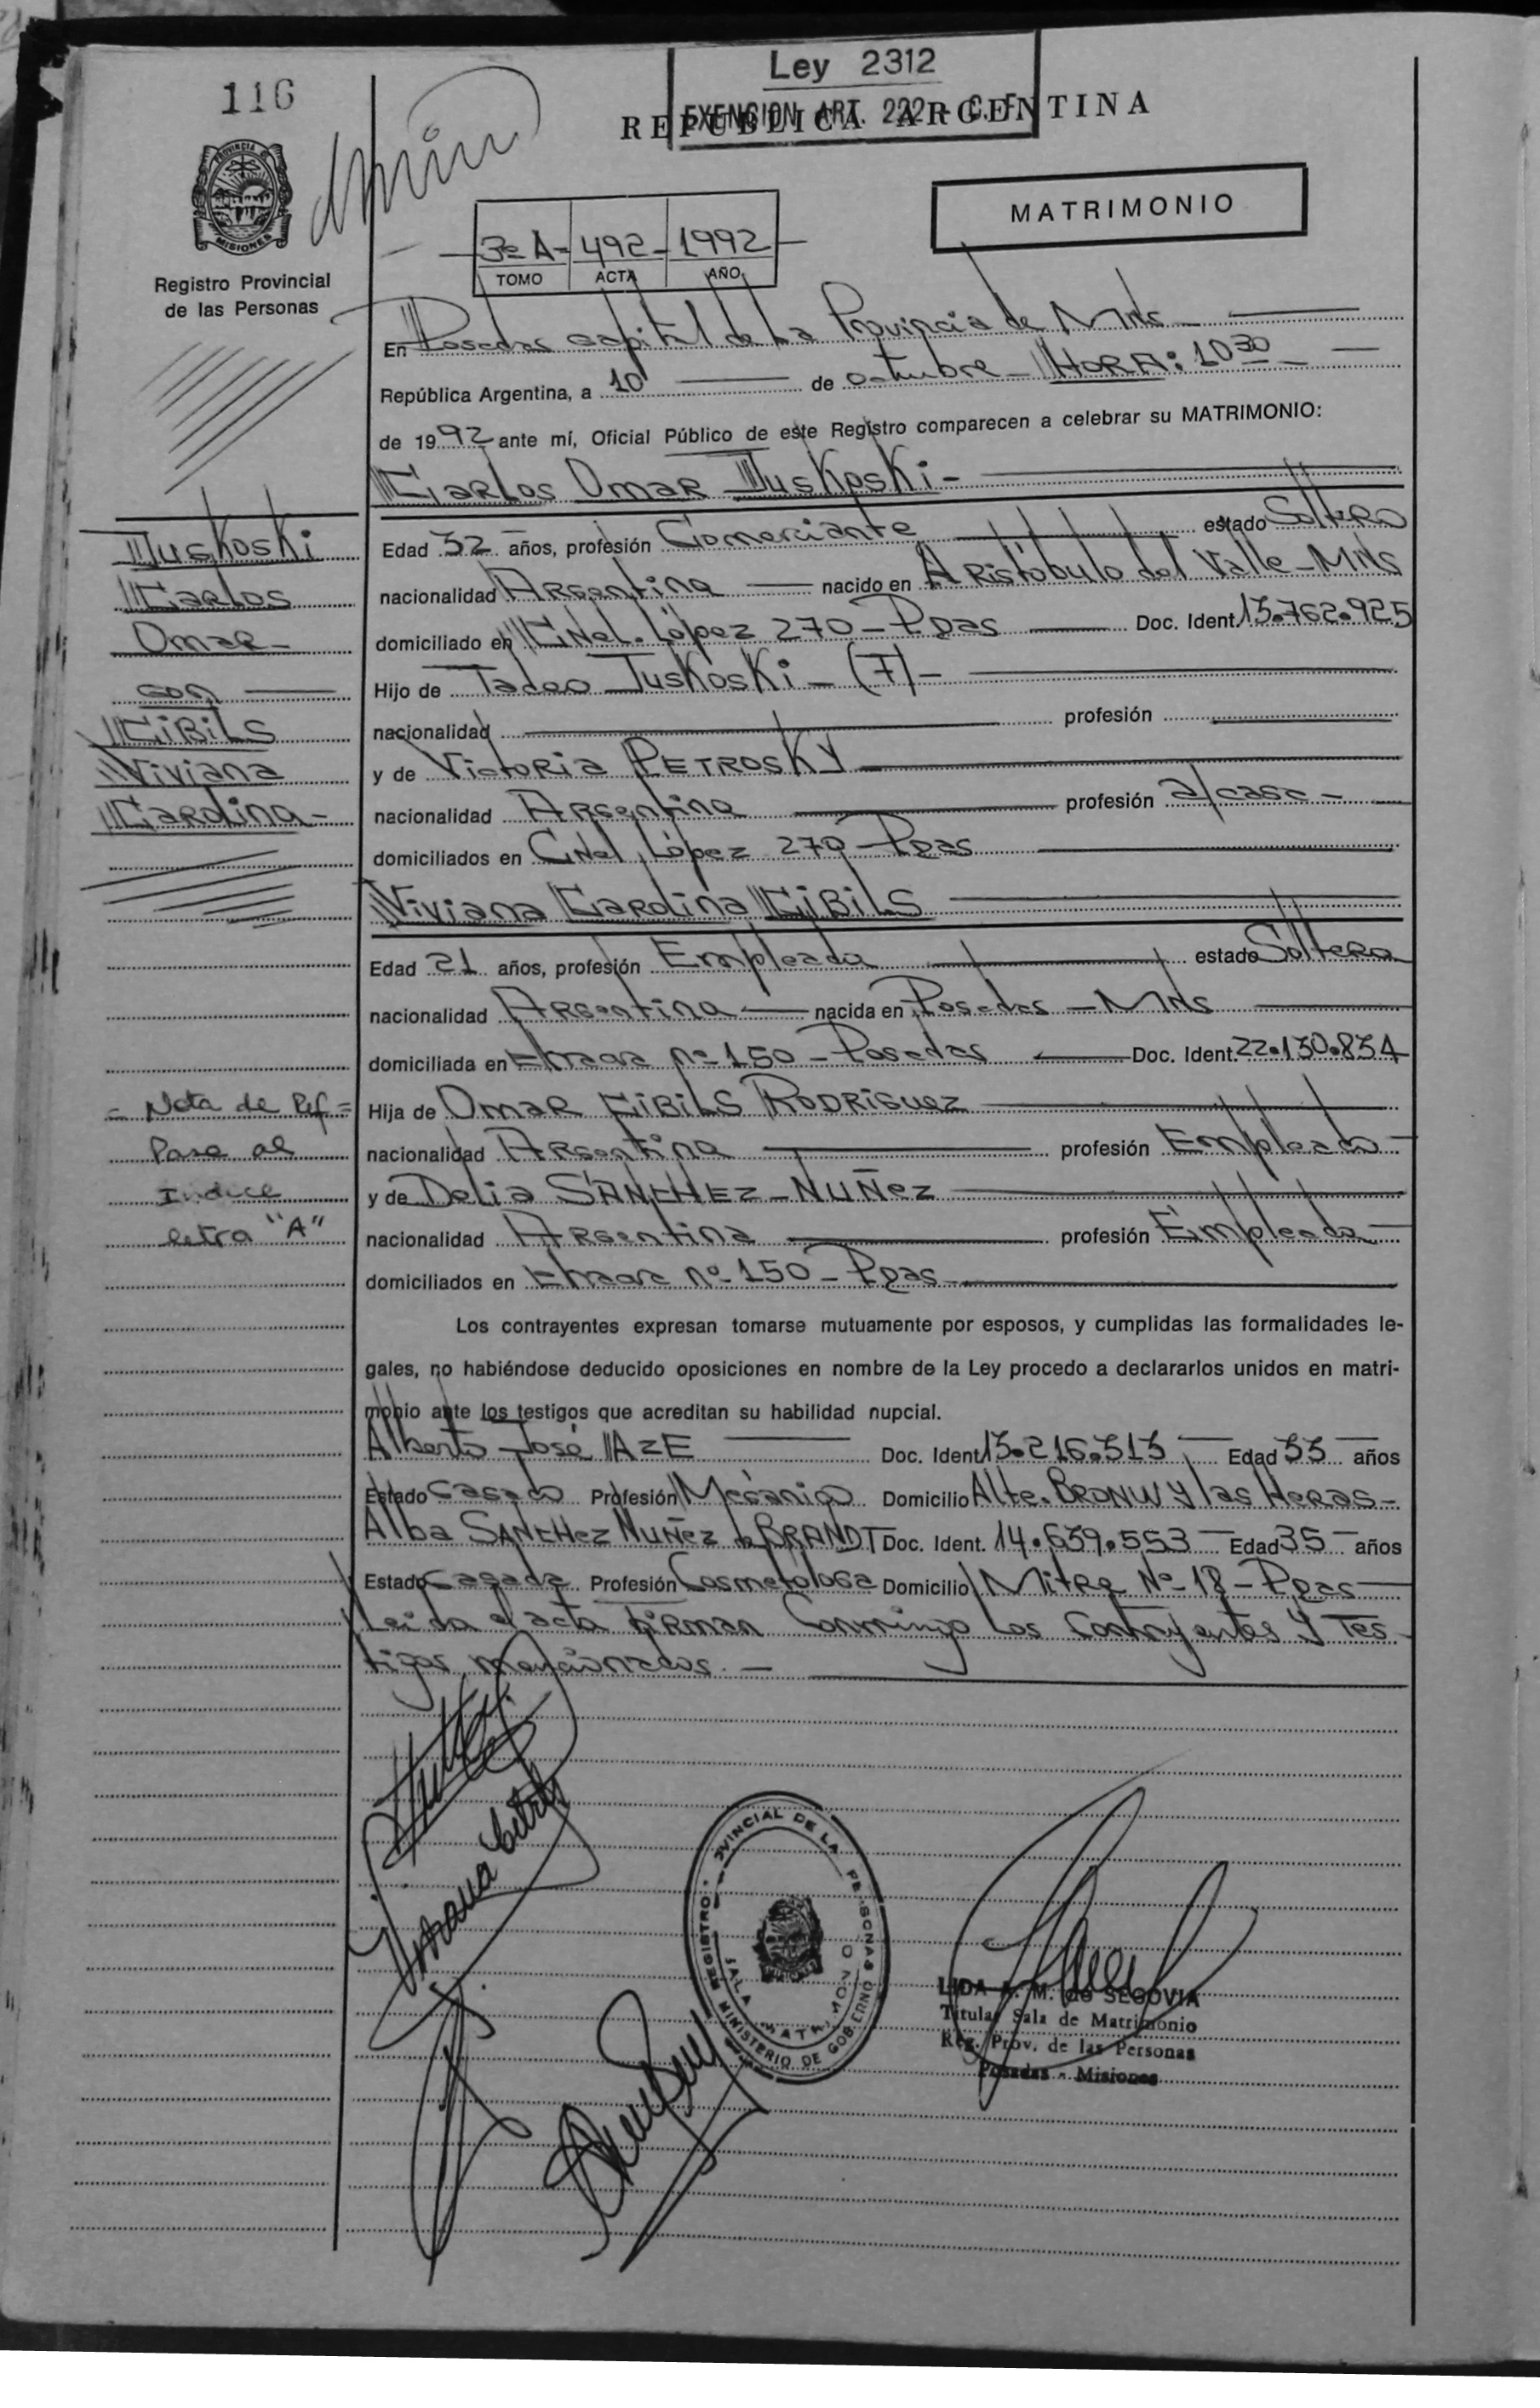 116
Ley 2312
EXENCION ART. 222 - C. F.
REPUBLICA ARGENTINA
PROVINCIA DE
MISIONES
Registro Provincial
de las Personas
MATRIMONIO
3º A - 492 - 1992
TOMO ACTA AÑO
En Posadas capital de La Provincia de Mnes
República Argentina, a 10 de octubre - HORA: 10 30
de 1992 ante mí, Oficial Público de este Registro comparecen a celebrar su MATRIMONIO:
Carlos Omar Juskoski -
Juskoski
Carlos
Omar -
con
CIBILS
Viviana
Carolina -
Edad 32 años, profesión Comerciante estado Soltero
nacionalidad Argentina nacido en Aristóbulo del Valle - Mnes
domiciliado en Cnel. López 270 - Pdas Doc. Ident. 13.762.925
Hijo de Tadeo Juskoski - (7) -
nacionalidad profesión
y de Victoria PETROSKY
nacionalidad Argentina profesión a/casa -
domiciliados en Cnel López 270 - Pdas
Viviana Carolina CIBILS
Edad 21 años, profesión Empleada estado Soltera
nacionalidad Argentina nacida en Posadas - Mnes
domiciliada en nº 150 - Posadas Doc. Ident. 22.130.834
Hija de Omar CIBILS RODRIGUEZ
nacionalidad Argentina profesión Empleado -
y de Delia SANCHEZ - NUÑEZ
nacionalidad Argentina profesión Empleada -
domiciliados en nº 150 - Pdas
= Nota de Ref =
Pase al
Indice
letra "A"
Los contrayentes expresan tomarse mutuamente por esposos, y cumplidas las formalidades le-
gales, no habiéndose deducido oposiciones en nombre de la Ley procedo a declararlos unidos en matri-
monio ante los testigos que acreditan su habilidad nupcial.
Alberto José AZE Doc. Ident. 13.216.313 Edad 33 años
Estado Casado Profesión Mecánico Domicilio Alte. BRONW y las Heras -
Alba SANCHEZ NUÑEZ de BRANDT Doc. Ident. 14.639.553 Edad 35 años
Estado Casada Profesión Cosmetologa Domicilio Mitre Nº 18 - Pdas
Leida el acta firman Conmigo Los Contrayentes y Tes
tigos mencionados. -
Viviana Cibils
REGISTRO PROVINCIAL DE LA PERSONAS
SALA MATRIMONIO
MINISTERIO DE GOBIERNO
LIDA A. M. de SEGOVIA
Titular Sala de Matrimonio
Reg. Prov. de las Personas
Posadas - Misiones